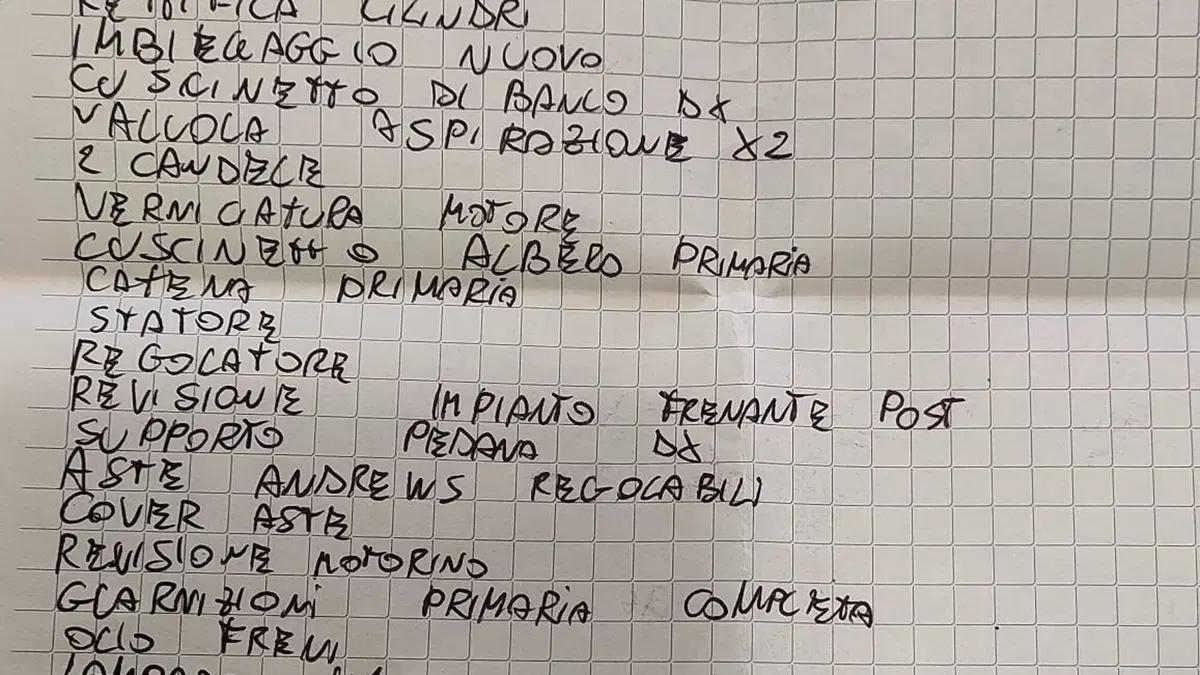 CILINDRI
IMBIELLAGGIO NUOVO
CUSCINETTO DI BANCO DX
VALVOLA ASPIRAZIONE X2
2 CANDELE
VERNICIATURA MOTORE
CUSCINETTO ALBERO PRIMARIA
CATENA PRIMARIA
STATORE
REGOLATORE
REVISIONE IMPIANTO FRENANTE POST
SUPPORTO PEDANA DX
ASTE ANDREWS REGOLABILI
COVER ASTE
REVISIONE MOTORINO
GUARNIZIONI PRIMARIA COMPLETA
OLIO FRENI